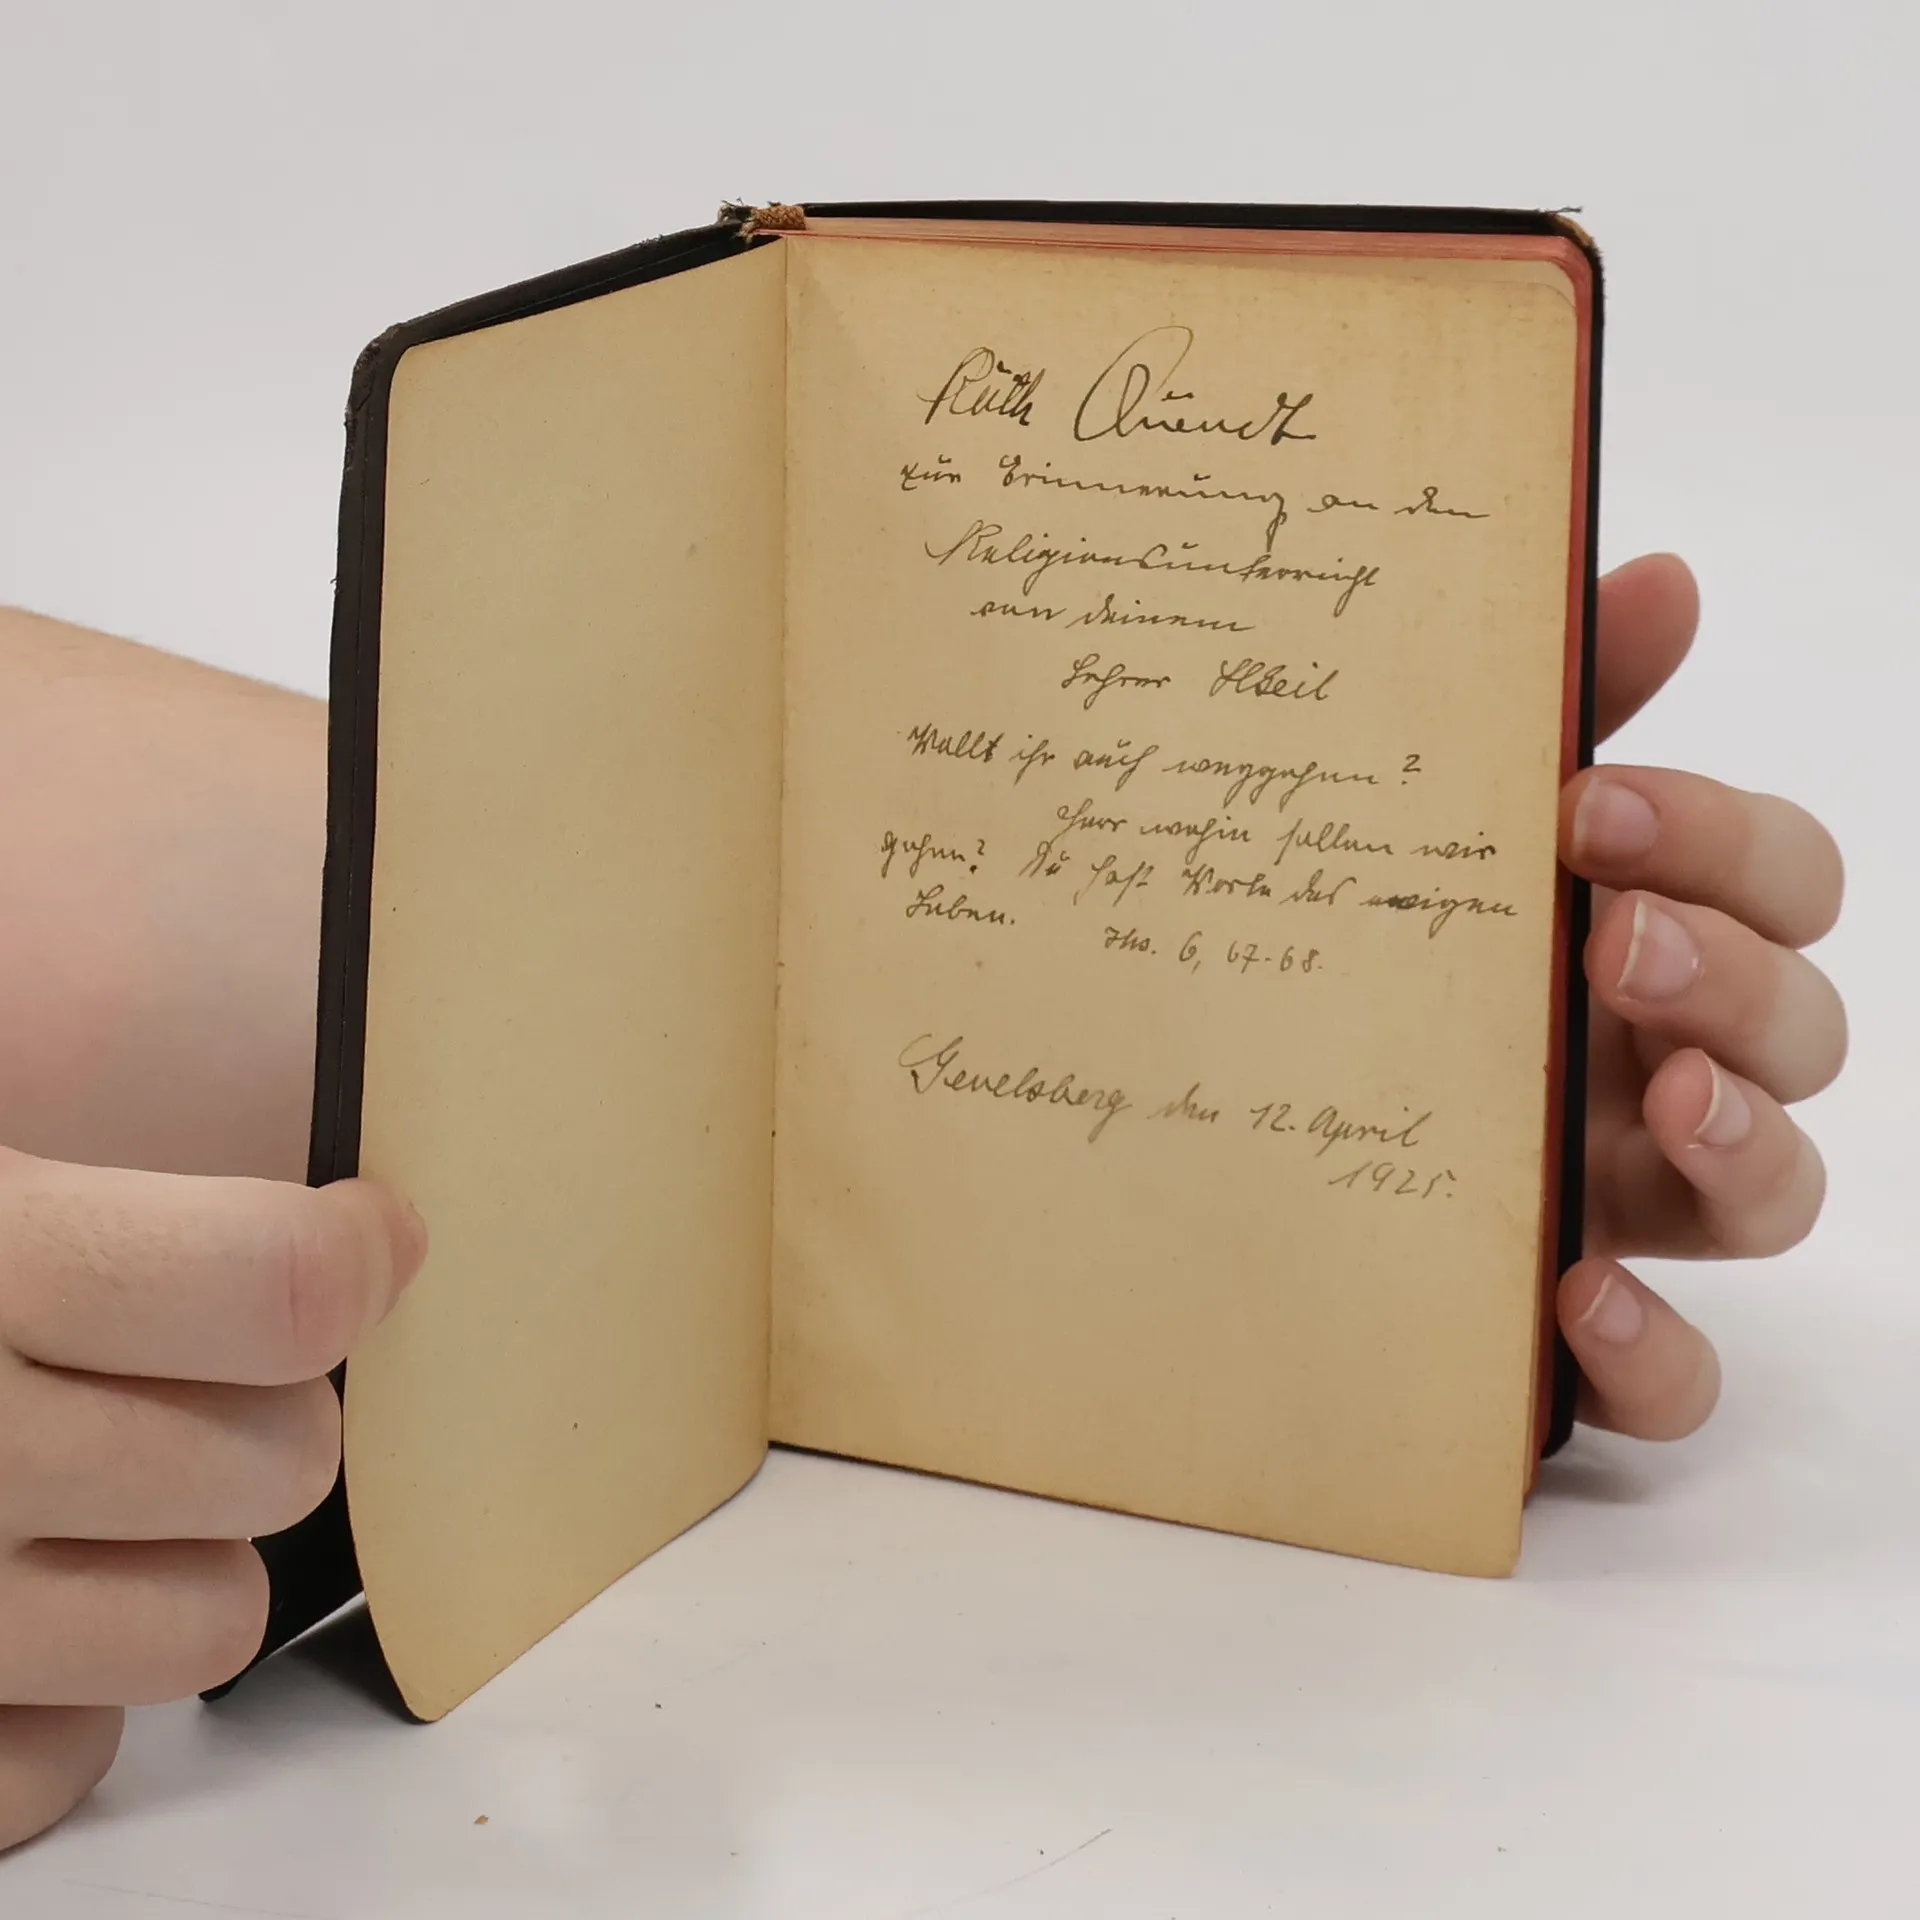 Ruth Quendt
zur Erinnerung an den
Religionsunterricht
von deinem
Lehrer
Wollt ihr auch weggehen?
Herr wohin sollen wir
gehen? Du hast Worte des ewigen
Leben.
Jhs. 6, 67-68.
Gevelsberg den 12. April
1925.